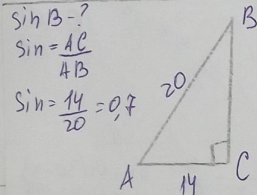 sin B-?
sin = AC/AB
sin = 14/20 = 0,7
B
20
A
14
C